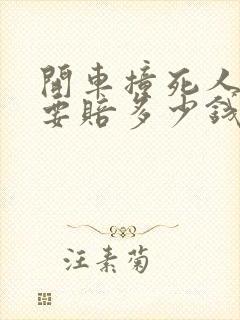 開車撞死人
要賠多少錢
汪素菊